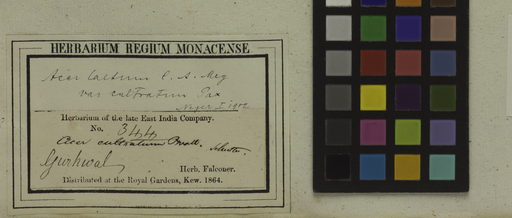 HERBARIUM REGIUM MONACENSE
Acer laetum C. A. Mey
var cultratum Pax
1902
Herbarium of the late East India Company.
No. 344
Acer cultratum Wall.
Gurhwal
Herb. Falconer.
Distributed at the Royal Gardens, Kew. 1864.